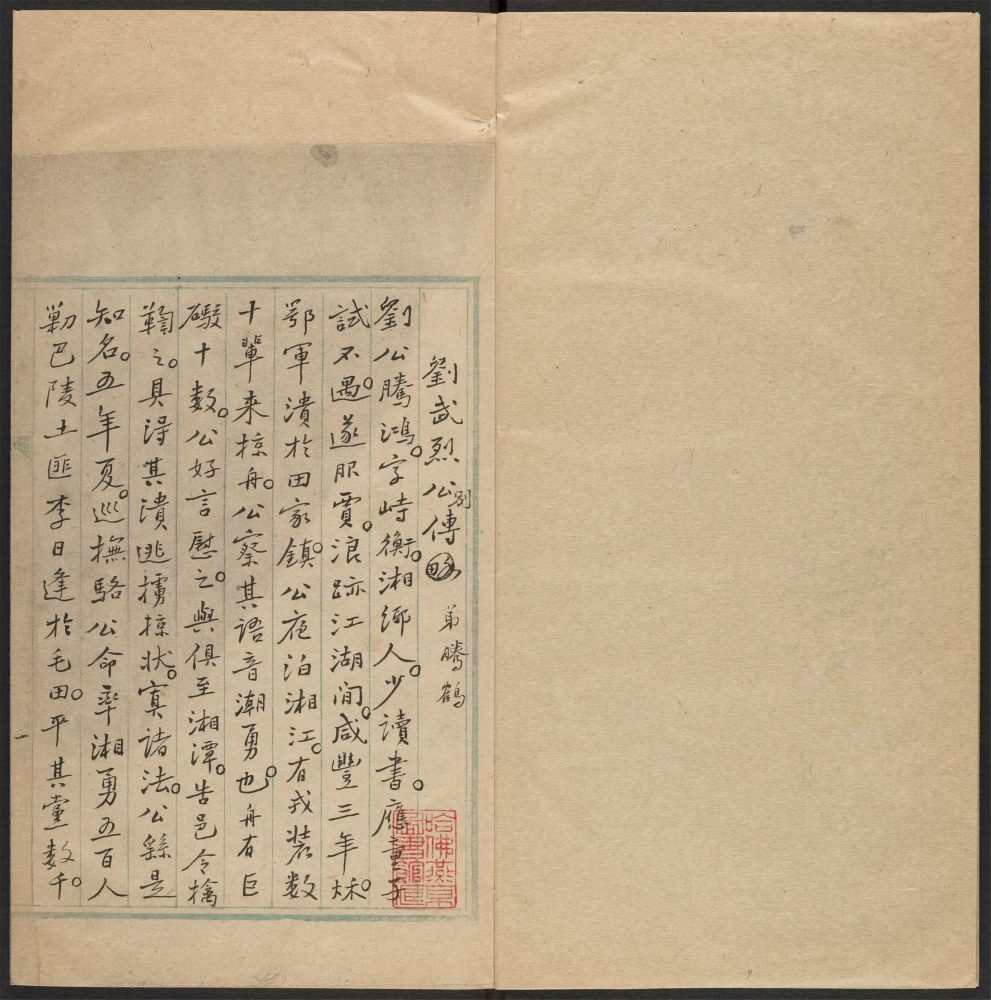 劉武烈公別傳略 弟騰鶴
劉公騰鴻。字峙衡。湘鄉人。少讀書。應童子
試不遇。遂服賈。浪跡江湖間。咸豐三年秌。
鄂軍潰於田家鎮。公夜泊湘江。有戎裝数
十輩来掠舟。公察其語音潮勇也。舟有巨
礮十数。公好言慰之。與俱至湘潭。告邑令擒
鞫之。具得其潰逃擄掠狀。寘諸法。公繇是
知名。五年夏。巡撫駱公命率湘勇五百人
勦巴陵土匪李日逢於毛田。平其黨数千。
哈佛燕京
圖書館